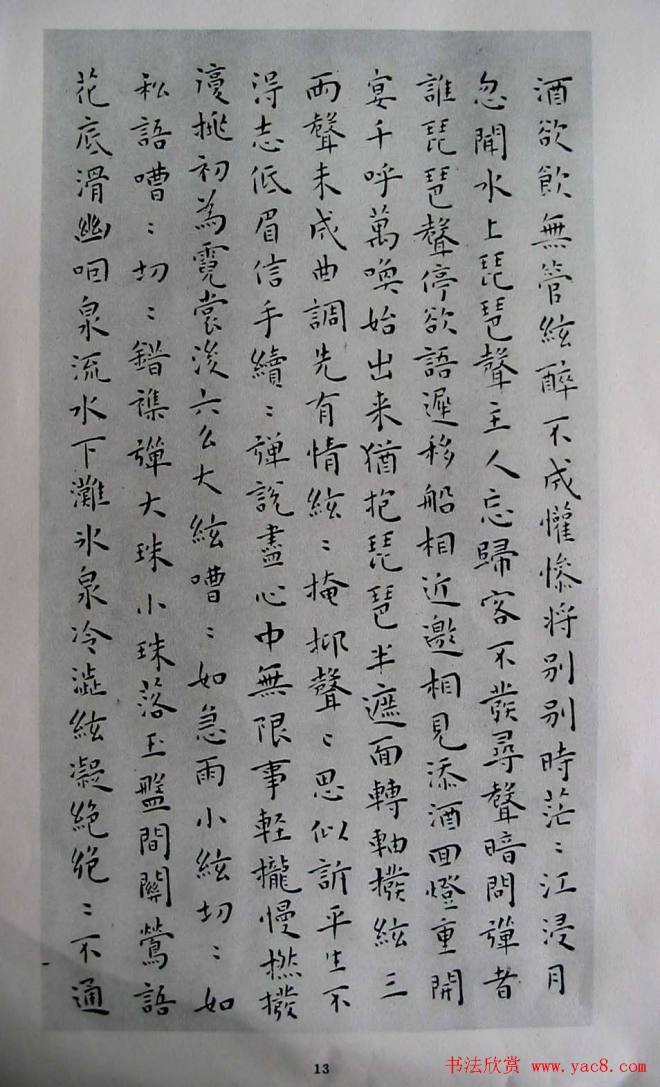 酒欲飲無管絃醉不成懽慘将别别時茫〻江浸月
忽聞水上琵琶聲主人忘歸客不發尋聲暗問彈者
誰琵琶聲停欲語遲移船相近邀相見添酒回燈重開
宴千呼萬喚始出来猶抱琵琶半遮面轉軸撥絃三
兩聲未成曲調先有情絃〻掩抑聲〻思似訴平生不
得志低眉信手續〻彈說盡心中無限事輕攏慢撚撥
復挑初為霓裳後六么大絃嘈〻如急雨小絃切〻如
私語嘈〻切〻錯雜彈大珠小珠落玉盤間關鶯語
花底滑幽咽泉流水下灘氷泉冷澀絃凝絶絶〻不通
13
书法欣赏 www.yac8.com